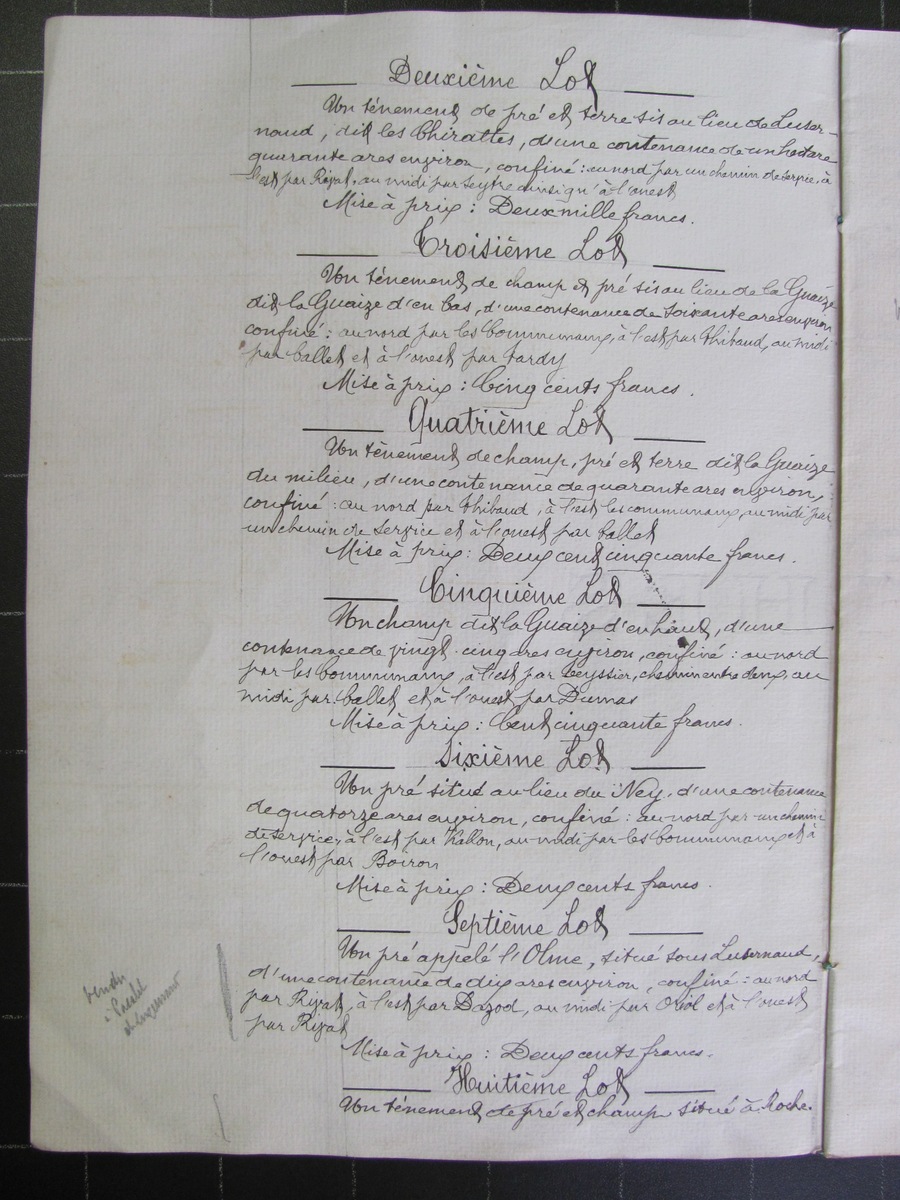 Deuxième Lot
Un ténement de pré et terre sis au lieu de Luser-
naud, dit les Chirattes, d'une contenance de un hectare
quarante ares environ, confiné : au nord par un chemin de service, à
l'est par Rijat, au midi par Seytre ainsi qu'à l'ouest
Mise à prix : Deux mille francs.
Troisième Lot
Un ténement de champ et pré sis au lieu de la Guaize
dit la Guaize d'en bas, d'une contenance de soixante ares environ
confiné : au nord par les Communaux, à l'est par Thibaud, au midi
par Callet et à l'ouest par Tardy
Mise à prix : Cinq cents francs.
Quatrième Lot
Un ténement de champ, pré et terre dit la Guaize
du milieu, d'une contenance de quarante ares environ,
confiné : au nord par Thibaud, à l'est les communaux, au midi par
un chemin de service et à l'ouest par Callet
Mise à prix : Deux cent cinquante francs.
Cinquième Lot
Un champ dit la Guaize d'en haut, d'une
contenance de vingt-cinq ares environ, confiné : au nord
par les Communaux, à l'est par Teyssier, chemin entre deux, au
midi par Callet et à l'ouest par Dumas
Mise à prix : Cent cinquante francs.
Sixième Lot
Un pré situé au lieu du Ney, d'une contenance
de quatorze ares environ, confiné : au nord par un chemin
de service, à l'est par Rallon, au midi par les Communaux et à
l'ouest par Boiron
Mise à prix : Deux cents francs.
Septième Lot
Un pré appelé l'Olme, situé sous Lusernaud,
d'une contenance de dix ares environ, confiné : au nord
par Rijat, à l'est par Dazod, au midi par Oriol et à l'ouest
par Rijat
Mise à prix : Deux cents francs.
Huitième Lot
Un ténement de pré et champ situé à Roche.
vendu